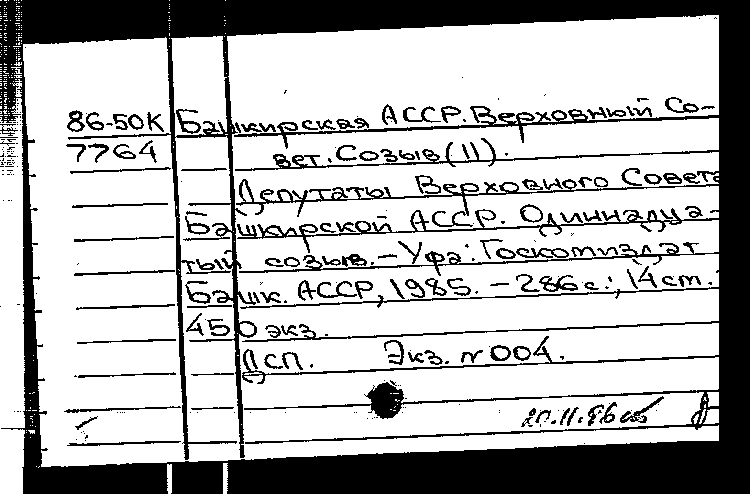 86-50К Башкирская АССР. Верховный Со-
7764 вет. Созыв (11).
Депутаты Верховного Совета
Башкирской АССР. Одиннадца-
тый созыв. – Уфа: Госкомиздат
Башк. АССР, 1985. – 286 с.; 14 см.
450 экз.
ДСП. Экз. № 004.
20.11.86